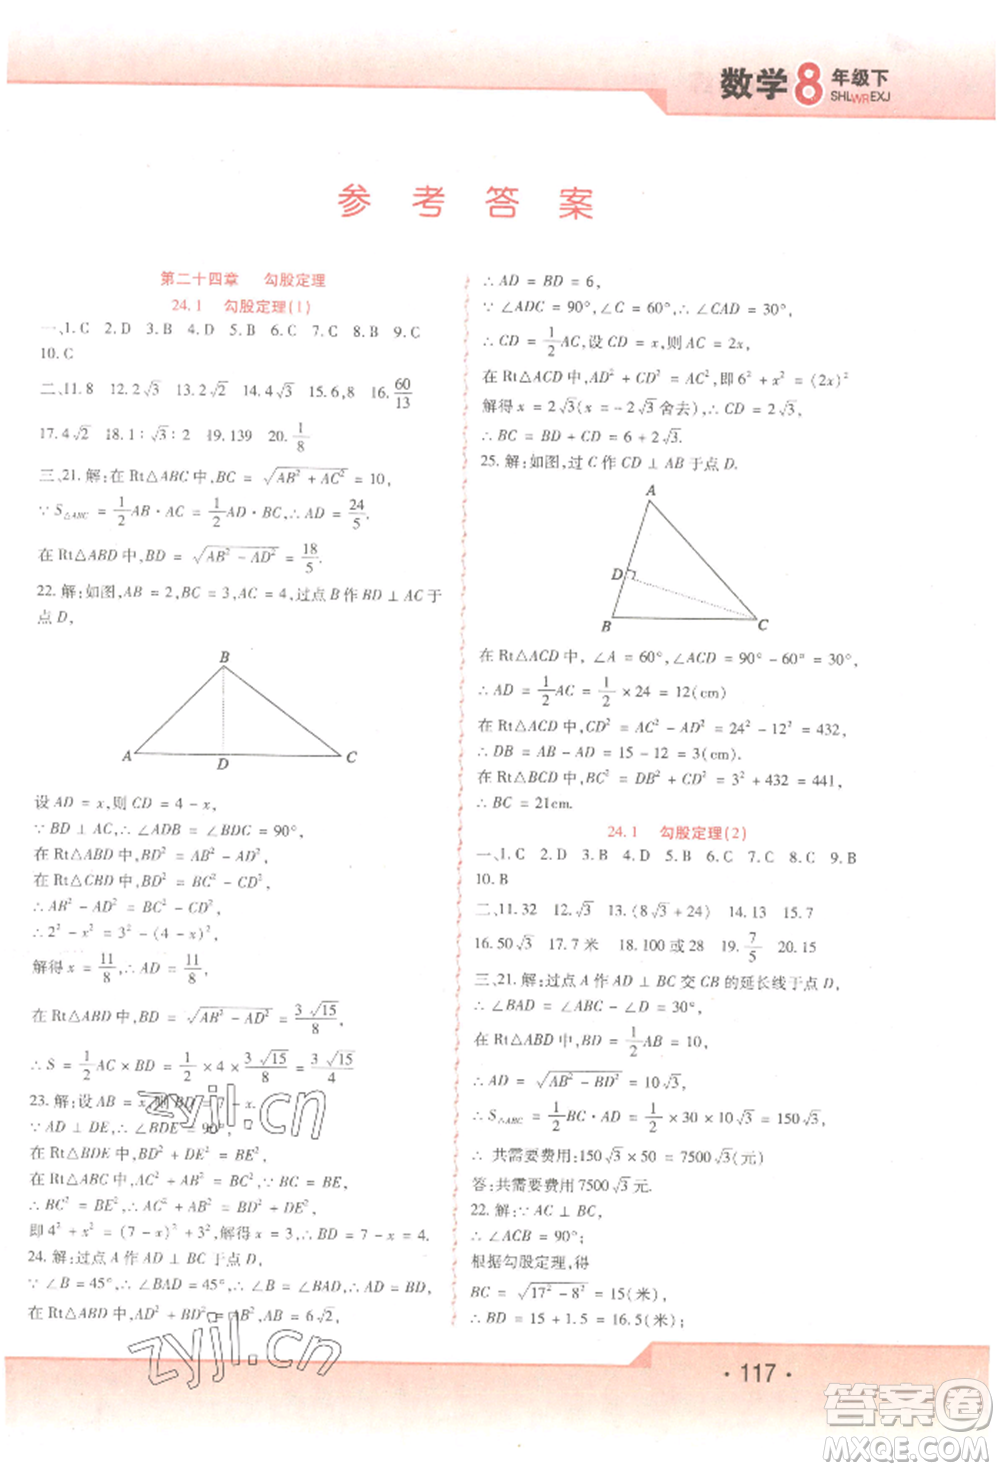 数学8年级下
SHLWREXJ
参考答案
第二十四章 勾股定理
24.1 勾股定理(1)
一、1.C 2.D 3.B 4.D 5.B 6.C 7.C 8.B 9.C
10.C
二、11.8 12.2√3 13.2√2 14.4√3 15.6,8 16.60/13
17.4√2 18.1:√3:2 19.139 20.1/8
三、21.解:在Rt△ABC中,BC=√(AB²+AC²)=10.
∵S△ABC=1/2AB·AC=1/2AD·BC,∴AD=24/5.
在Rt△ABD中,BD=√(AB²-AD²)=18/5.
22.解:如图,AB=2,BC=3,AC=4,过点B作BD⊥AC于
点D,
B
A D C
设AD=x,则CD=4-x,
∵BD⊥AC,∴∠ADB=∠BDC=90°,
在Rt△ABD中,BD²=AB²-AD²,
在Rt△CBD中,BD²=BC²-CD²,
∴AB²-AD²=BC²-CD²,
∴2²-x²=3²-(4-x)²,
解得x=11/8,∴AD=11/8,
在Rt△ABD中,BD=√(AB²-AD²)=3√15/8,
∴S=1/2AC×BD=1/2×4×3√15/8=3√15/4
23.解:设AB=x,则BD=7-x.
∵AD⊥DE,∴∠BDE=90°,
在Rt△BDE中,BD²+DE²=BE²,
在Rt△ABC中,AB²+AC²=BC²,∵BC=BE,
∴BC²=BE²,∴AB²+AC²=BD²+DE²,
即4²+x²=(7-x)²+3²,解得x=3,∴BD=7-x=4.
24.解:过点A作AD⊥BC于点D,
∵∠B=45°,∴∠BAD=45°,∴∠B=∠BAD,∴AD=BD,
在Rt△ABD中,AD²+BD²=AB²,AB=6√2,
∴AD=BD=6,
∵∠ADC=90°,∠C=60°,∴∠CAD=30°,
∴CD=1/2AC,设CD=x,则AC=2x,
在Rt△ACD中,AD²+CD²=AC²,即6²+x²=(2x)²
解得x=2√3(x=-2√3舍去),∴CD=2√3,
∴BC=BD+CD=6+2√3.
25.解:如图,过C作CD⊥AB于点D.
A
D
B C
在Rt△ACD中,∠A=60°,∠ACD=90°-60°=30°,
∴AD=1/2AC=1/2×24=12(cm)
在Rt△ACD中,CD²=AC²-AD²=24²-12²=432,
∴DB=AB-AD=15-12=3(cm)
在Rt△BCD中,BC²=DB²+CD²=3²+432=441,
∴BC=21cm.
24.1 勾股定理(2)
一、1.C 2.D 3.B 4.D 5.B 6.C 7.C 8.C 9.B
10.B
二、11.32 12.√3 13.(8√3+24) 14.13 15.7
16.50√3 17.7米 18.100或28 19.7/5 20.15
三、21.解:过点A作AD⊥BC交CB的延长线于点D,
∴∠BAD=∠ABC-∠D=30°;
在Rt△ABD中,BD=1/2AB=10;
∴AD=√(AB²-BD²)=10√3,
∴S△ABC=1/2BC·AD=1/2×30×10√3=150√3,
∴共需要费用:150√3×50=7500√3(元)
答:共需要费用7500√3元.
22.解:∵AC⊥BC,
∴∠ACB=90°;
根据勾股定理,得
BC=√(17²-8²)=15(米),
∴BD=15+1.5=16.5(米);
·117·
zyjl.cn
zyjl.cn
答案圈
MXQE.COM